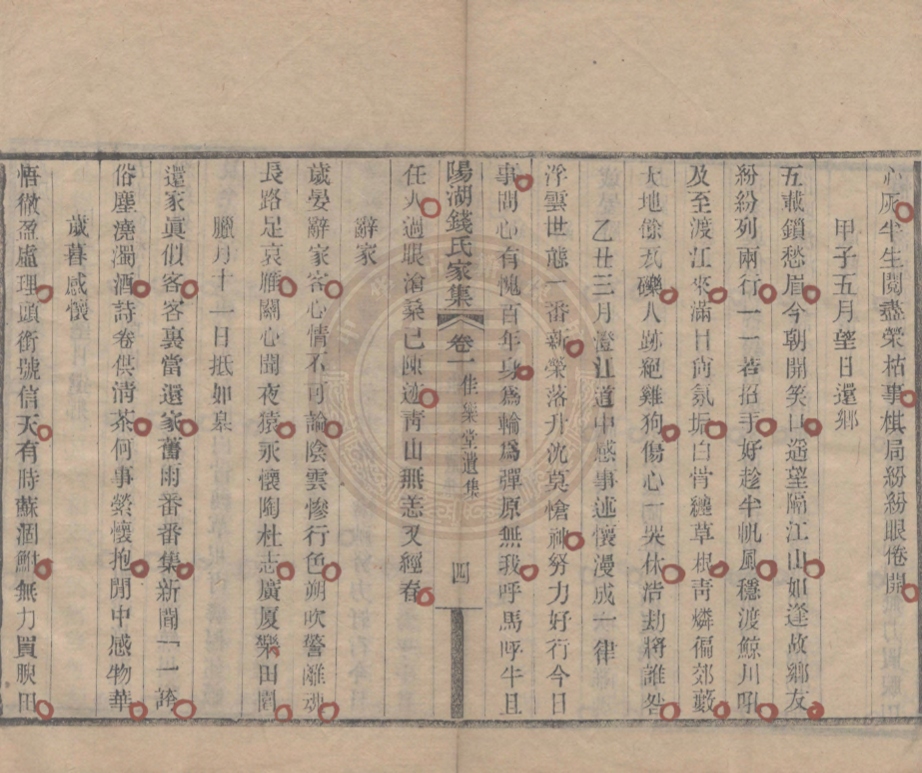 心灰半生閱盡榮枯事棋局紛紛眼倦開
甲子五月望日還鄉
五載鎖愁眉今朝開笑口遙望隔江山如逢故鄉友
紛紛列兩行一一若招手好趁半帆風穩渡鯨川吼
及至渡江來滿目尙氛垢白骨纏草根靑燐徧郊藪
大地餘瓦礫人跡絕雞狗傷心一哭休浩劫將誰咎
乙丑三月澄江道中感事述懷漫成一律
浮雲世態一番新榮落升沈莫愴神努力好行今日
事問心有愧百年身爲輪爲彈原無我呼馬呼牛且
任人過眼滄桑已陳迹靑山無恙又經春
陽湖錢氏家集 卷一 集堂遺集 四
辭家
歲晏辭家客心情不可論陰雲慘行色朔吹警離魂
長路足哀雁關心聞夜猿永懷陶杜志廣厦樂田園
臘月十一日抵如皋
還家眞似客客裏當還家舊雨番番集新聞一一誇
俗塵澆濁酒詩卷供淸茶何事縈懷抱閒中感物華
歲暮感懷
悟徹盈虛理頭銜號信天有時蘇涸鮒無力買腴田